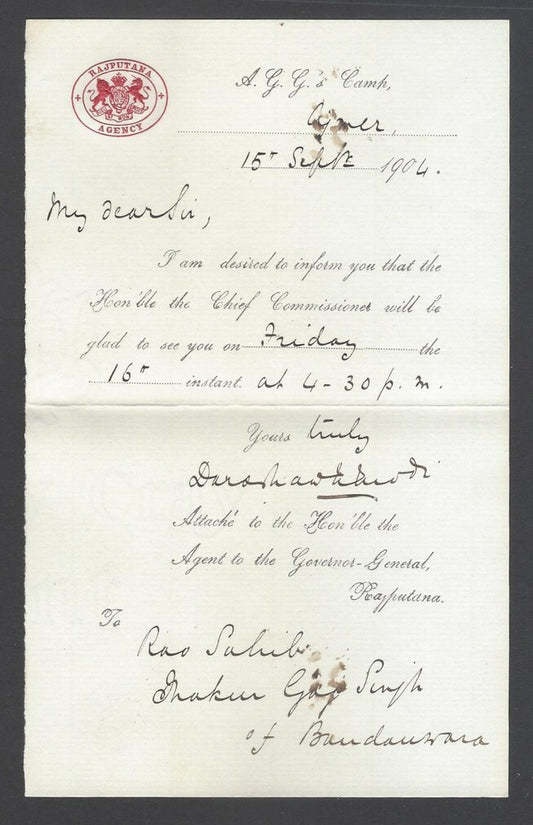 RAJPUTANA
AGENCY
A. G. G.'s Camp,
Ajmer,
15th Septr 1904.
My dear Sir,
I am desired to inform you that the
Hon'ble the Chief Commissioner will be
glad to see you on Friday the
16th instant. at 4-30 p. m.
Yours truly
Attaché to the Hon'ble the
Agent to the Governor-General,
Rajputana.
To
Rao Sahib
Thakur Gaj Singh
of Bandanwara